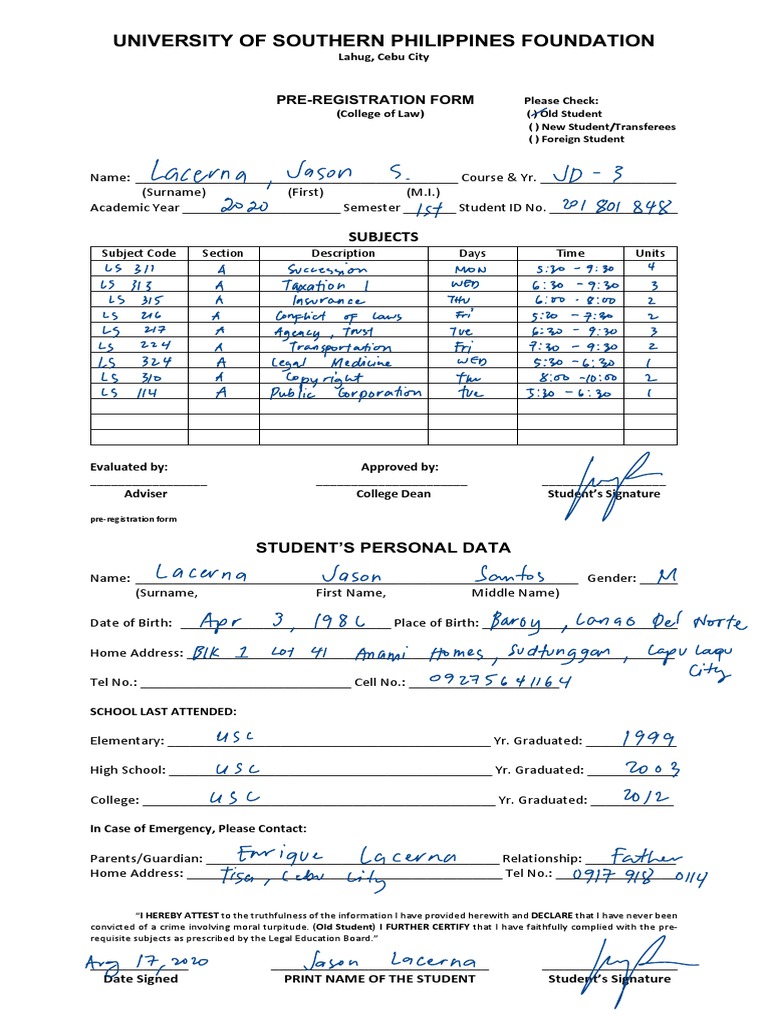 UNIVERSITY OF SOUTHERN PHILIPPINES FOUNDATION
Lahug, Cebu City
PRE-REGISTRATION FORM
(College of Law)
Please Check:
(✓) Old Student
( ) New Student/Transferees
( ) Foreign Student
Name: Lacerna, Jason S. Course & Yr. JD - 3
(Surname) (First) (M.I.)
Academic Year 2020 Semester 1st Student ID No. 201801848
SUBJECTS
Subject Code Section Description Days Time Units
LS 311 A Succession MON 5:30 - 9:30 4
LS 313 A Taxation 1 WED 6:30 - 9:30 3
LS 315 A Insurance THU 6:00 - 8:00 2
LS 216 A Conflict of Laws Fri 5:30 - 7:30 2
LS 217 A Agency, Trust Tue 6:30 - 9:30 3
LS 224 A Transportation Fri 7:30 - 9:30 2
LS 324 A Legal Medicine WED 5:30 - 6:30 1
LS 310 A Copyright Thu 8:00 - 10:00 2
LS 114 A Public Corporation tue 5:30 - 6:30 1
Evaluated by: Approved by:
Adviser College Dean Student's Signature
pre-registration form
STUDENT'S PERSONAL DATA
Name: Lacerna Jason Santos Gender: M
(Surname, First Name, Middle Name)
Date of Birth: Apr 3, 1986 Place of Birth: Baroy, Lanao Del Norte
Home Address: Blk 2 Lot 41 Anami Homes, Sudtunggan, Lapu Lapu City
Tel No.: Cell No.: 09275641164
SCHOOL LAST ATTENDED:
Elementary: USC Yr. Graduated: 1999
High School: USC Yr. Graduated: 2003
College: USC Yr. Graduated: 2012
In Case of Emergency, Please Contact:
Parents/Guardian: Enrique Lacerna Relationship: Father
Home Address: Tisa, Cebu City Tel No.: 0917 918 0114
"I HEREBY ATTEST to the truthfulness of the information I have provided herewith and DECLARE that I have never been
convicted of a crime involving moral turpitude. (Old Student) I FURTHER CERTIFY that I have faithfully complied with the pre-
requisite subjects as prescribed by the Legal Education Board."
Aug 17, 2020 Jason Lacerna
Date Signed PRINT NAME OF THE STUDENT Student's Signature